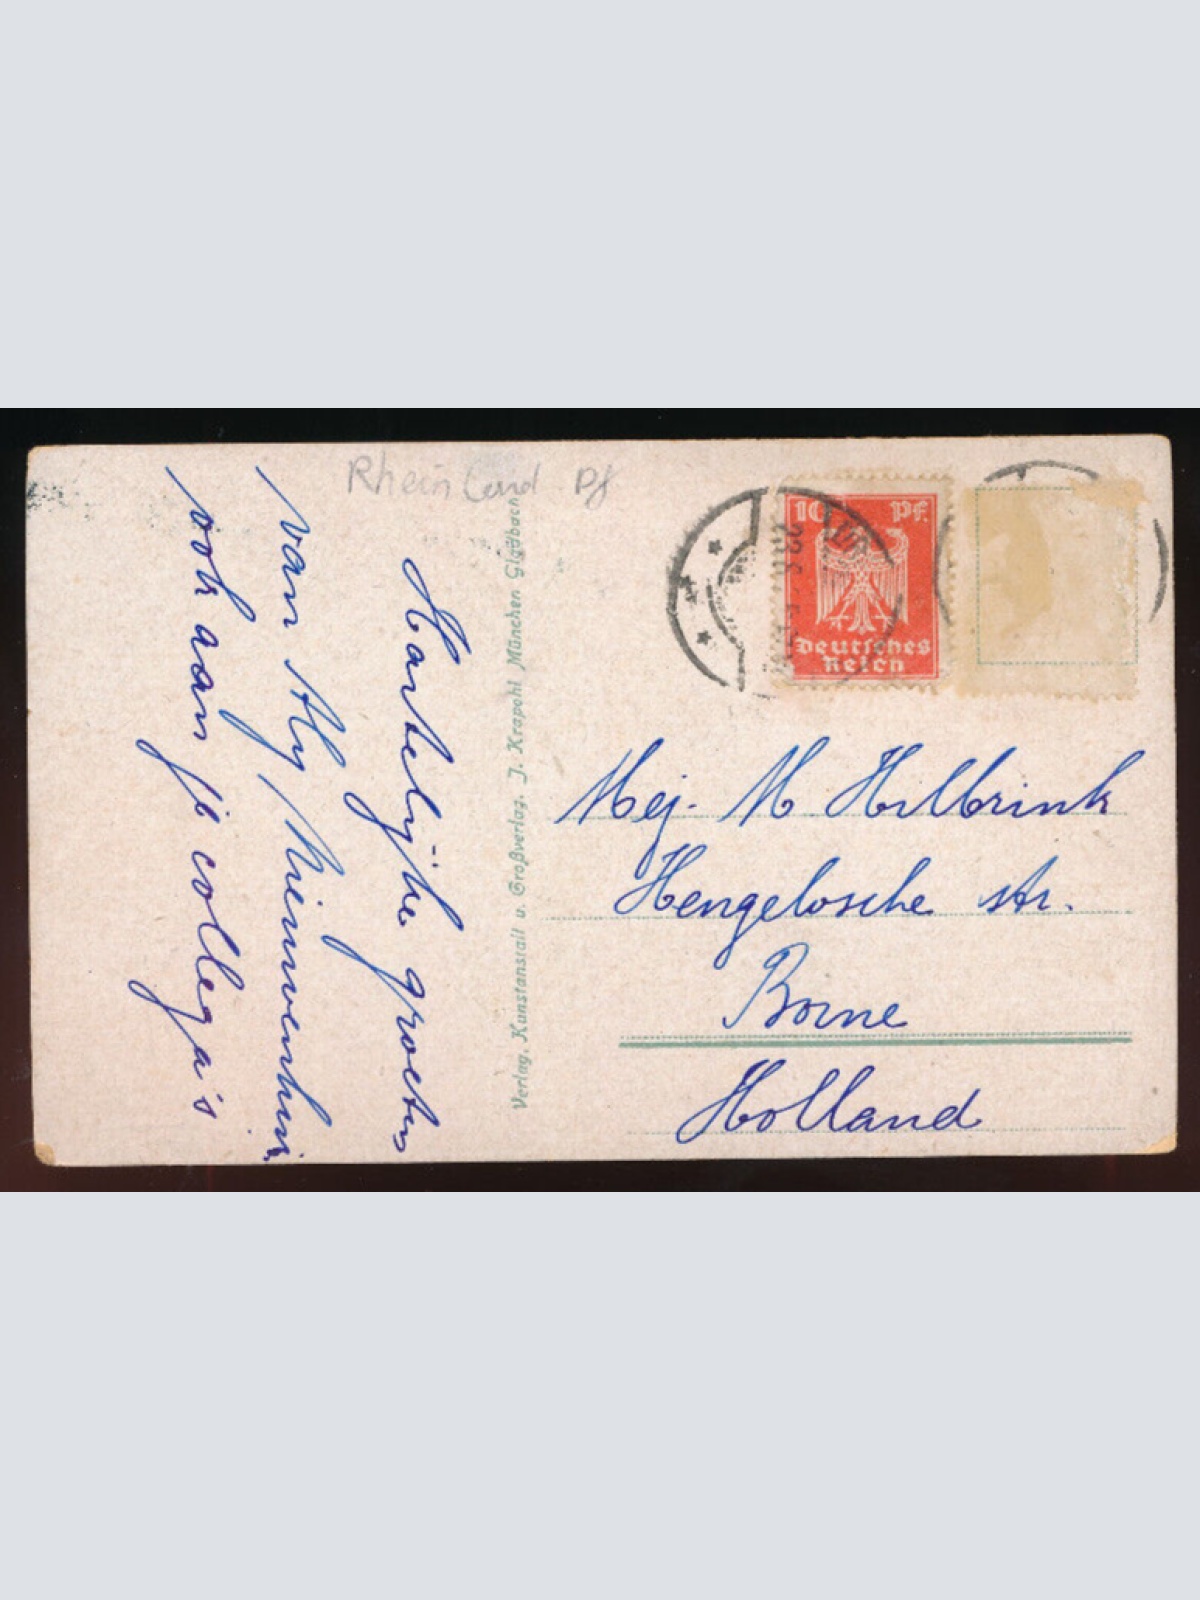 Rheinland Pf
Hartelijke groeten
van Aly Nieuwenhuis.
ook aan je collega's
Verlag, Kunstanstalt u. Großverlag, J. Krapohl München Gladbach
10 Pf.
Deutsches
Reich
Mej. M Hilbrink
Hengelosche str.
Borne
Holland